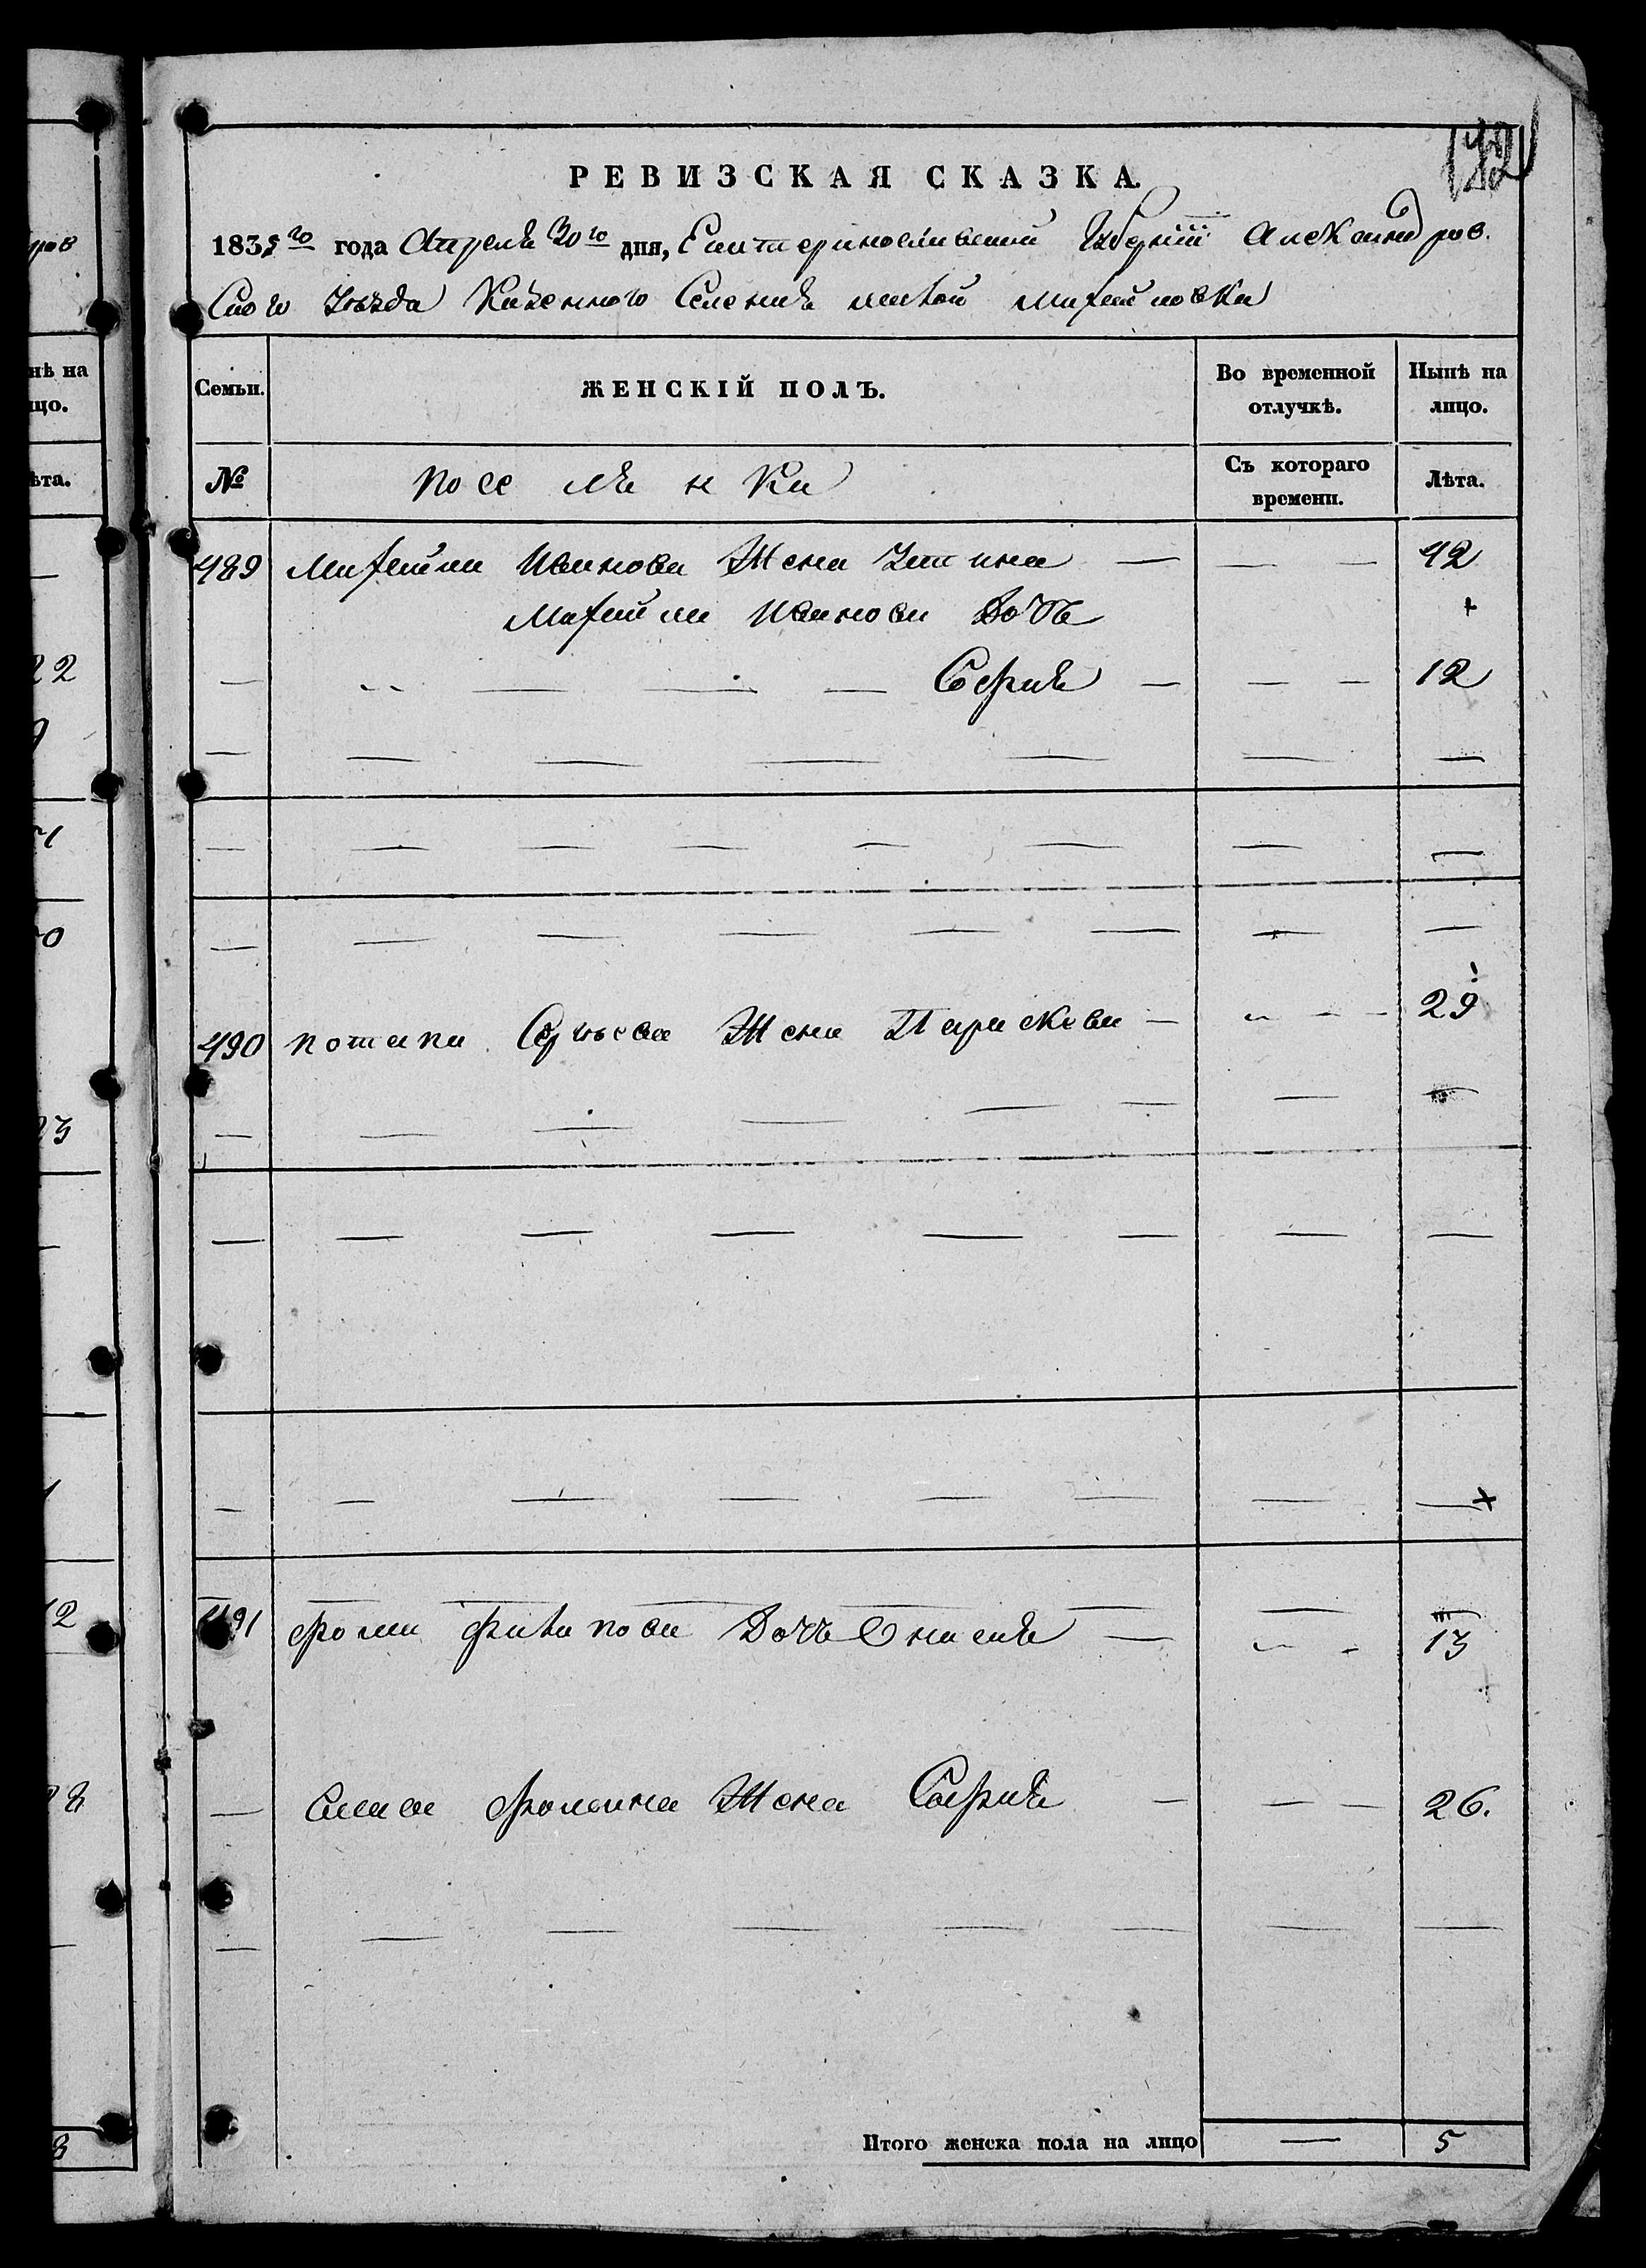 РЕВИЗСКАЯ СКАЗКА.
1835го года Апреля 30го дня, Екатеринославской Губернiи Александров.
Скаго Уѣзда Казенного Селения малой Михайловки
Семьи. ЖЕНСКIЙ ПОЛЪ. Во временной отлучкѣ. Нынѣ на лицо.
№ поселянки Съ котораго времени. Лѣта.
489 Михайла Иванова Жена Устина — — — 42
Михайла Иванова Дочь
— София — — — 12
490 потапа Жена Парасковия — 29
491 Фомы Филипова Дочь — 13
— Савы Фомина Жена София — — — 26.
Итого женска пола на лицо — 5
нѣ на
цо.
ѣта.
22
23